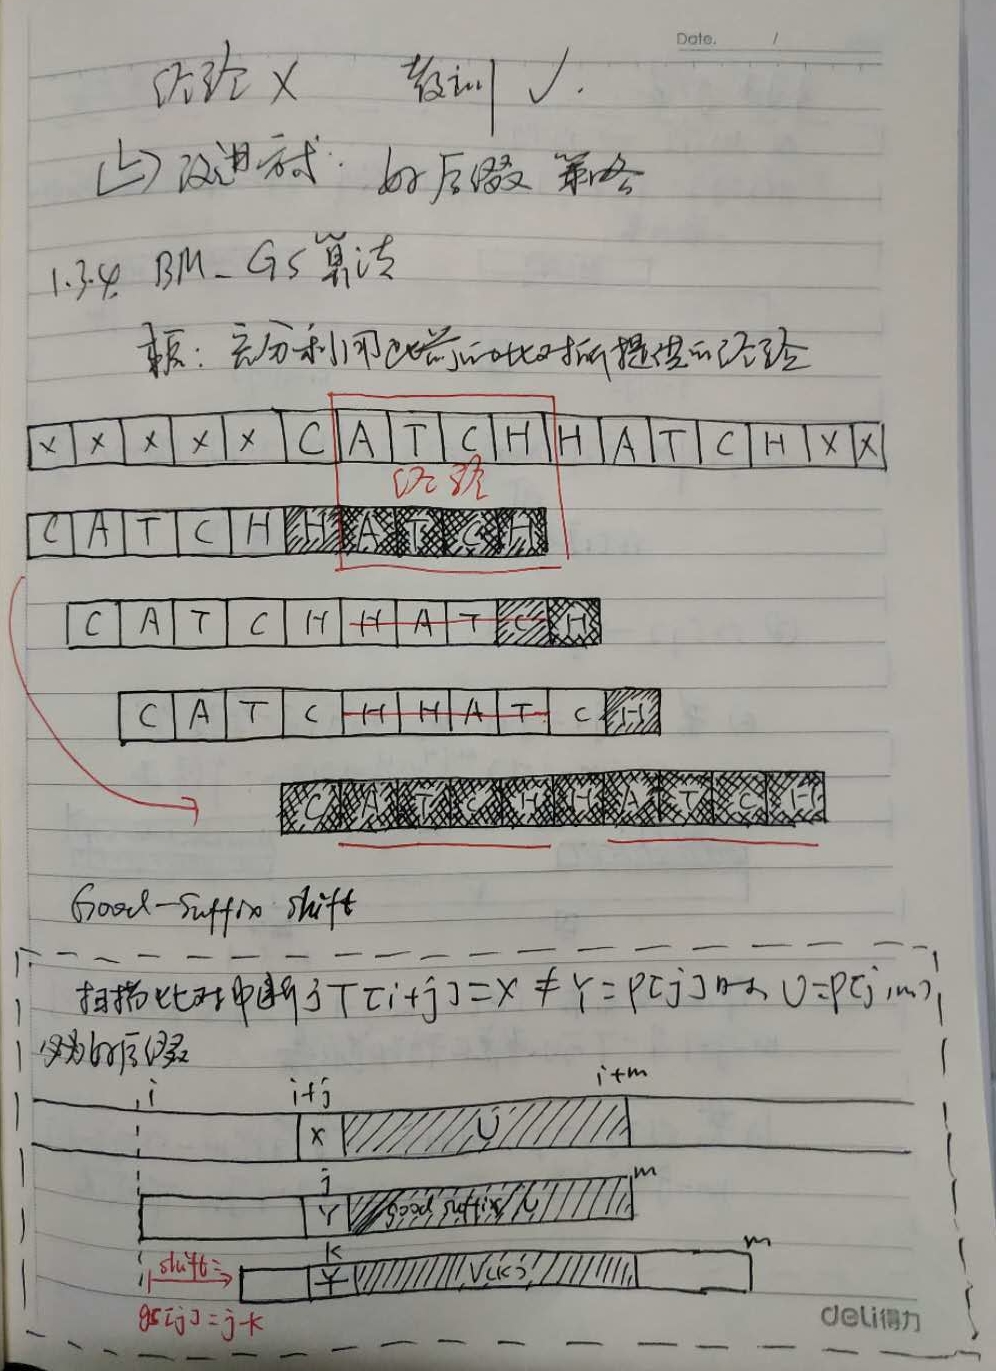 Date. /
经验 X 教训 √.
↳ 改进方式: 好后缀 策略
1.3.4. BM_GS算法
: 充分利用此前的比对所提供的经验
X X X X X C A T C H H A T C H X X
经验
C A T C H H A T C H
C A T C H H A T C H
C A T C H H A T C H
C A T C H H A T C H
Good-suffix shift
扫描比对中断于T[i+j]=X≠Y=P[j]时, U=P(j,m)
必为好后缀
i i+j i+m
X U
j m
Y good suffix U
k m
Y V(k)
shift=
gs[j]=j-k
deli得力